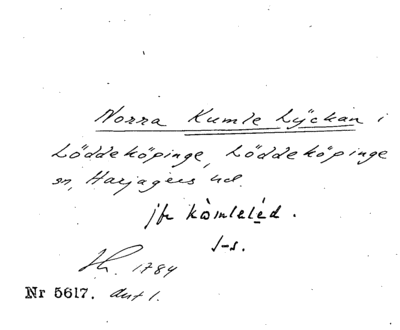 Norra Kumle Lyckan i
Löddeköpinge, Löddeköpinge
sn, Harjagers hd.
jfr kòmleléd.
l-s.
Lh. 1784
Nr 5617. Ant 1.